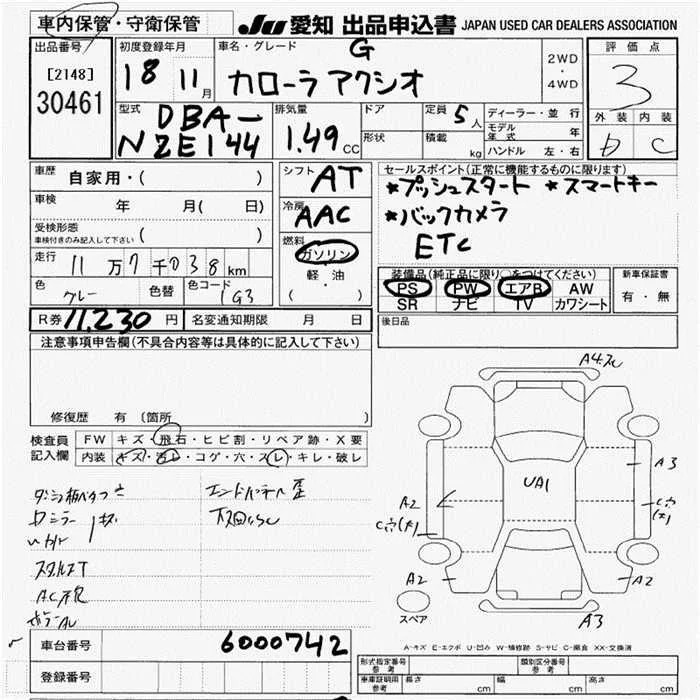 車内保管・守衛保管 JU 愛知 出品申込書 JAPAN USED CAR DEALERS ASSOCIATION
出品番号 初度登録年月 車名・グレード G 2WD・4WD 評価点
[2148] 18年 11月 カローラ アクシオ 3
30461 外装 内装
型式 DBA- 排気量 ドア 定員 5人 ディーラー・並行 b C
NZE144 1.49CC 形状 積載 kg モデル年式 年
ハンドル 左・右
車歴 自家用・( ) シフト AT セールスポイント(正常に機能するものに限ります)
車検 年 月( 日) 冷房 AAC *プッシュスタート *スマートキー
受検形態 ( ) *バックカメラ
車検付きのみ記入して下さい 燃料 ガソリン ETC
走行 11万7千038km 軽・油
色 グレー 色替 色コード 1G3 ( )
装備品(純正品に限り○をつけてください) 新車保証書
PS PW エアB AW 有・無
SR ナビ TV カワシート
R券 11,230円 名変通知期限 月 日 後日品
注意事項申告欄(不具合内容等は具体的に記入して下さい)
修復歴 有 (箇所 )
検査員記入欄 FW キズ・飛石・ヒビ割・リペア跡・X要
内装 キズ・汚レ・コゲ・穴・スレ・キレ・破レ
A3
UA1
A2
A2
A2
A3
スペア
A-キズ E-エクボ U-凹み W-補修跡 S-サビ C-腐食 XX-交換済
車台番号 6000742
登録番号
形式指定番号 参考 類別区分番号 参考
車庫証明用 参考 長さ cm 幅 cm 高さ cm